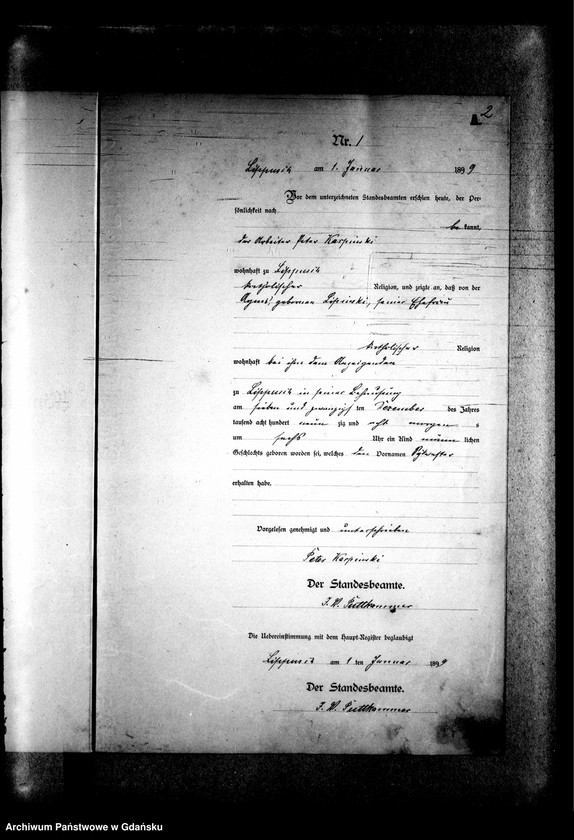 2
Nr. 1
Lippusch am 1. Januar 1899
Vor dem unterzeichneten Standesbeamten erschien heute, der Per-
sönlichkeit nach
be kannt,
der Arbeiter Peter Karpinski
wohnhaft zu Lippusch
katholischer Religion, und zeigte an, daß von der
geborenen seiner Ehefrau
katholischer Religion
wohnhaft bei ihm dem Anzeigenden
zu Lippusch in seiner Behausung
am sieben und zwanzigsten Dezember des Jahres
tausend acht hundert neun zig und acht morgens
um sechs Uhr ein Kind männlichen
Geschlechts geboren worden sei, welches den Vornamen Sylvester
erhalten habe.
Vorgelesen genehmigt und unterschrieben
Peter Karpinski
Der Standesbeamte.
Puttkammer
Die Uebereinstimmung mit dem Haupt-Register beglaubigt
Lippusch am 1 ten Januar 1899
Der Standesbeamte.
Puttkammer
Archiwum Państwowe w Gdańsku